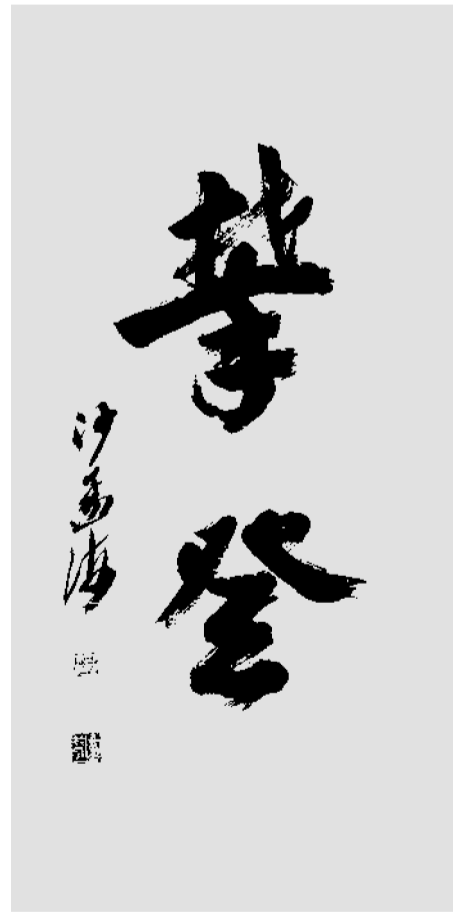 攀登
沙孟海